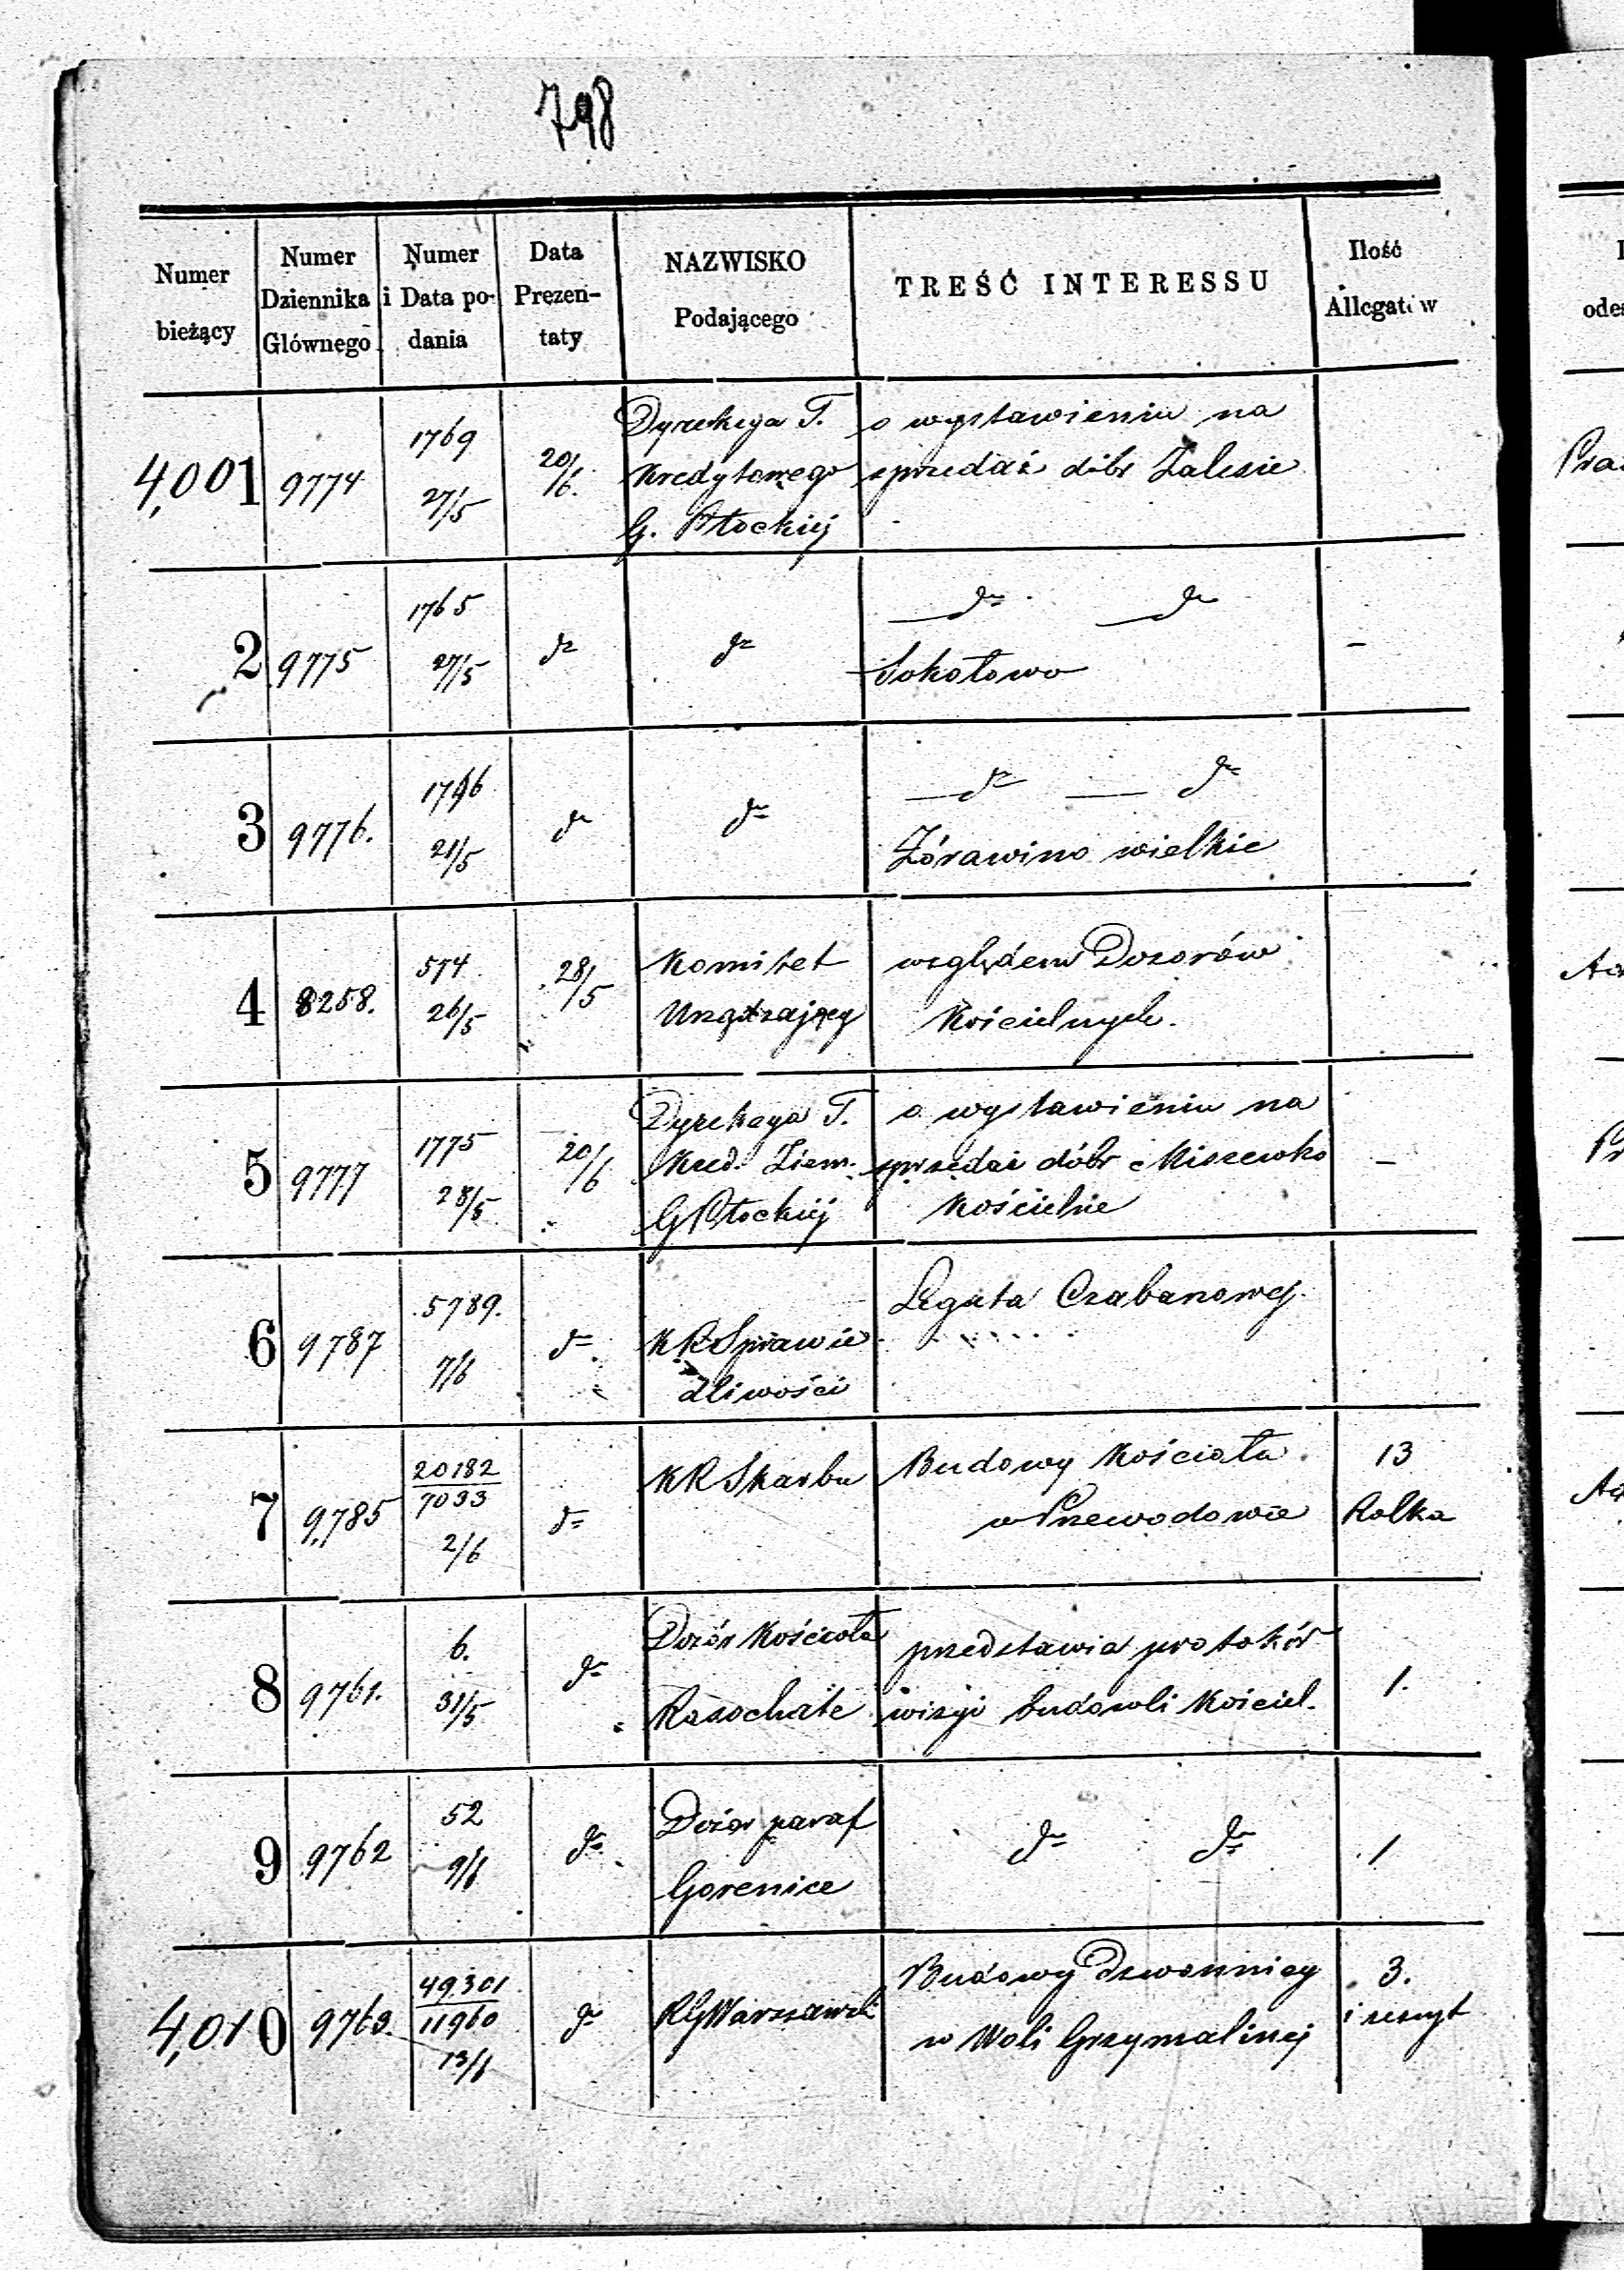 798
Numer bieżący
Numer Dziennika Głównego
Numer i Data podania
Data Prezentaty
NAZWISKO Podającego
TREŚĆ INTERESSU
Ilość Allegatów
4,001 9774 1769 27/5 20/6 Dyrekcya T. o wystawieniu na
Kredytowego sprzedaż dóbr Zalesie
G. Płockiej
2 9775 1765 27/5 do do do do
Sokołowo -
3 9776. 21/5 do do do do
Żórawino wielkie
4 8258. 574 26/5 28/5 Komitet względem Dozorów
Urządzający Kościelnych.
5 9777 1775 28/5 20/6 Dyrekcya T. o wystawieniu na
Kred. Ziem. sprzedaż dóbr Miszewko -
G Płockiej Kościelne
6 9787 5789. 7/6 do Legata Czabanowej.
KR Sprawie
dliwości
7 9,785 20182 7033 2/6 do KR Skarbu Budowy Kościoła 13
w Przewodowie Rolka
8 9761. 6. 31/5 do Dozór Kościoła przedstawia protokół
Rosochate wizyi budowli Kościel. 1.
9 9762 52 9/6 do Dozór paraf do do 1
Gorenice
4,010 9763. 49301 11960 13/6 do RGWarszawski Budowy Dzwonnicy 3.
w Woli Grzymalinej i zeszyt